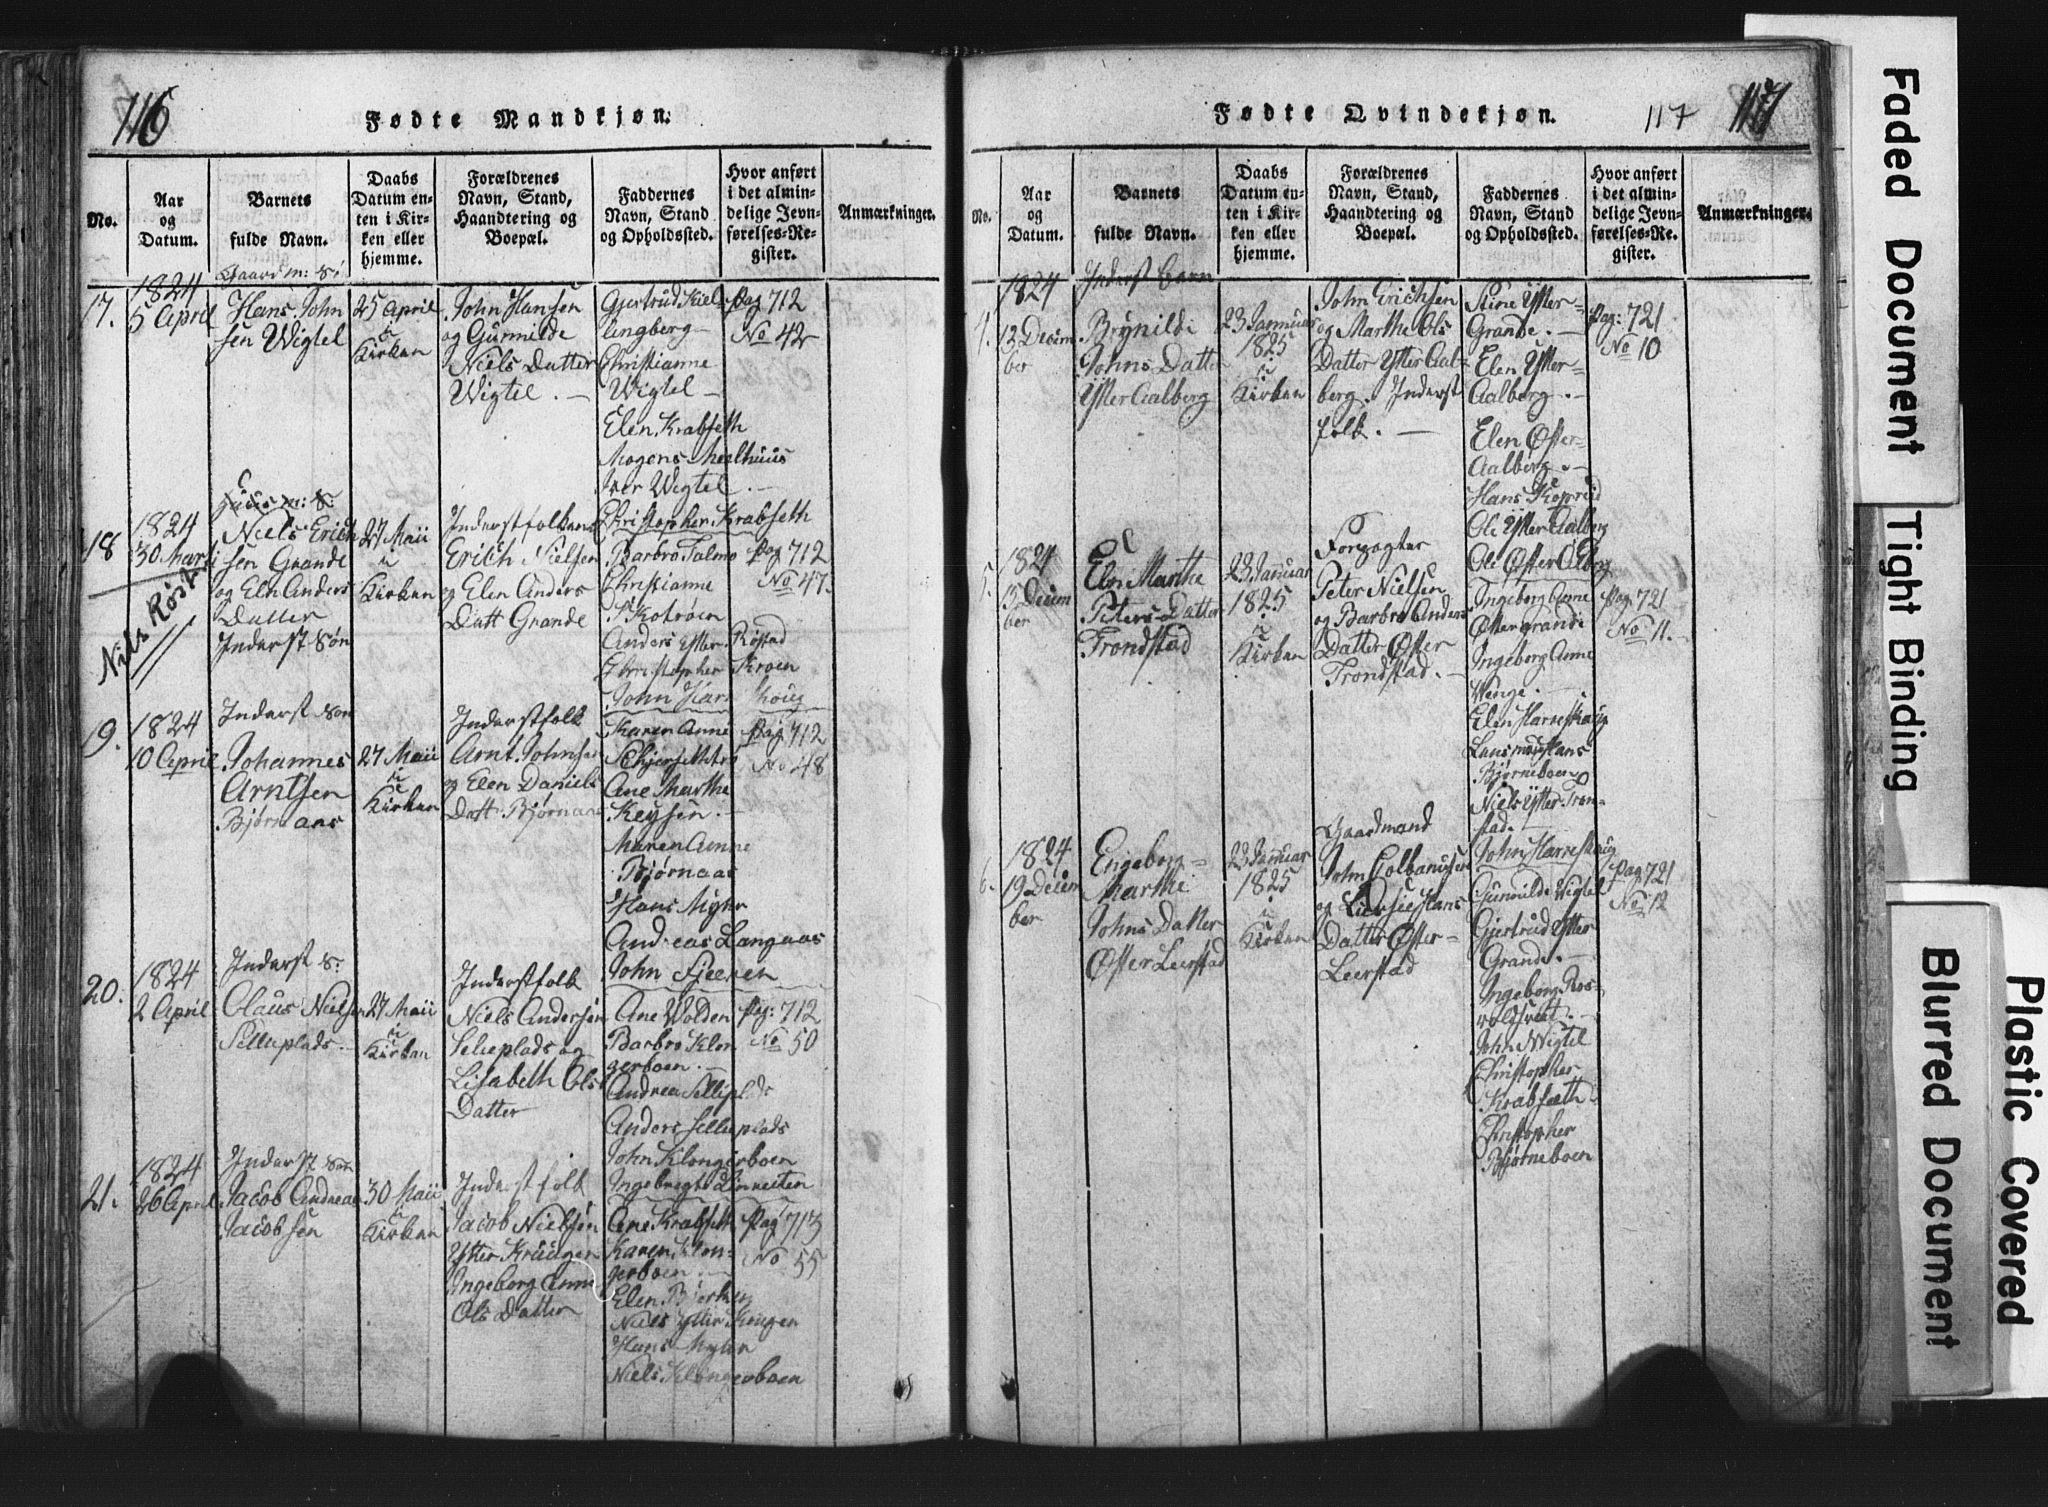 116
Fødte Mandkjøn.
No.
Aar
og
Datum.
Barnets
fulde Navn.
Daabs
Datum en-
ten i Kir-
ken eller
hjemme.
Forældrenes
Navn, Stand,
Haandtering og
Boepæl.
Faddernes
Navn, Stand
og Opholdssted.
Hvor anført
i det almin-
delige Jevn-
førelses-Re-
gister.
Anmærkninger.
17.
1824
5 April
Gaardm: S:
Hans John
sen Wigtel
25 April
i
Kirken
John Hansen
og Gunnilde
Niels Datter
Wigtel. —
Gjertrud
Christianne
Wigtel —
Elen Krabseth
Mogens Melhuus
Iver Wigtel. —
Christopher Krabseth
Pag 712
No 42
18
1824
30 Marti
Niels Røst
Niels Erich
sen Grande
og Eln Anders
Datter
Inderst Søn
27 Maii
i
Kirken
Inderstfolkene
Erich Nielsen
og Elen Anders
Datt Grande
Barbro Talmo
Christianne
Anders Ytter Røstad
Christopher Kroen
John Har skoug
Pag 712
No 47.
19.
1824
10 April
Inderst Søn
Johannes
Arntsen
Bjørnaas
27 Maii
i
Kirken
Inderstfolk
Arnt Johnsen
og Elen Daniels
Datt: Bjørnaas
Karen Anne
Ane Marthe
Keysen. —
Maren Anne
Bjørnaas
Hans Myhr
Andreas Langaas
John
Pag 712
No 48
20.
1824
2 April
Inderst S:
Olaus Nielsen
Selleplads
27 Maii
i
Kirken
Inderstfolk
Niels Andersen
Seleplads og
Lisabeth Ols
Datter
Ane Wolden
Barbro Klon
gerboen. —
Andrea Selliplads
Anders Selleplads
John Klongerboen
Ingebregt
Pag: 712
No 50
21.
1824
26 April
Inderst Søn
Jacob Andreas
Jacobsen
30 Maii
i
Kirken
Inderstfolk
Jacob Nielsen
Ytter Kruger
Ingeborg Anne
Ols Datter
Ane Krabseth
Karen Klon-
gerboen. —
Elen
Niels Ytter Krugen
Hans Myhr
Niels Klongerboen
Pag 713
No 55
Fødte Qvindekjøn.
117
117
No.
Aar
og
Datum.
Barnets
fulde Navn.
Daabs
Datum en-
ten i Kir-
ken eller
hjemme.
Forældrenes
Navn, Stand,
Haandtering og
Boepæl.
Faddernes
Navn, Stand
og Opholdssted.
Hvor anført
i det almin-
delige Jevn-
førelses-Re-
gister.
Anmærkninger.
1824
13 Decem
ber
Inderst Barn
Brynilde
Johns Datter
Ytter Aalberg
23 Januar
1825
i
Kirken
John Erichsen
og Marthe Ols
Datter Ytter Aal-
berg. Inderst
folk. —
Stine Ytter-
Grande. —
Elen Ytter-
Aalberg. —
Elen Øster-
Aalberg. —
Hans
Ole Ytter Aalberg
Ole Øster Alberg
Pag: 721
No 10
5.
1824
15 Decem
ber
Eln Marthe
Peters Datter
Trondstad
23 Januar
1825
i
Kirken
Forpagter
Peter Nielsen
og Barbro Anders
Datter Øster
Trondstad. —
Ingeborg Anne
Øster grande
Ingeborg Anne
Wenge. —
Elen Harreskoug
Bjørneboen
Niels Ytter Tron-
stad. —
John Harreskoug
Pag: 721
No 11.
6.
1824
19 Decem
ber
Engeborg-
Marthe
Johns Datter
Øster Leerstad
23 Januar
1825
i
Kirken
Gaardmand
John Colbanusen
og Hans
Datter Øster-
Leerstad
Gunnilde Wigtel
Gjertrud Ytter
Grande. —
Ingeborg Ros-
voldsvedt. —
John Wigtel
Christopher
Krabsæth
Christopher
Bjørneboen
Pag 721
No 12
Faded Document
Tight Binding
Blurred Document
Plastic Covered